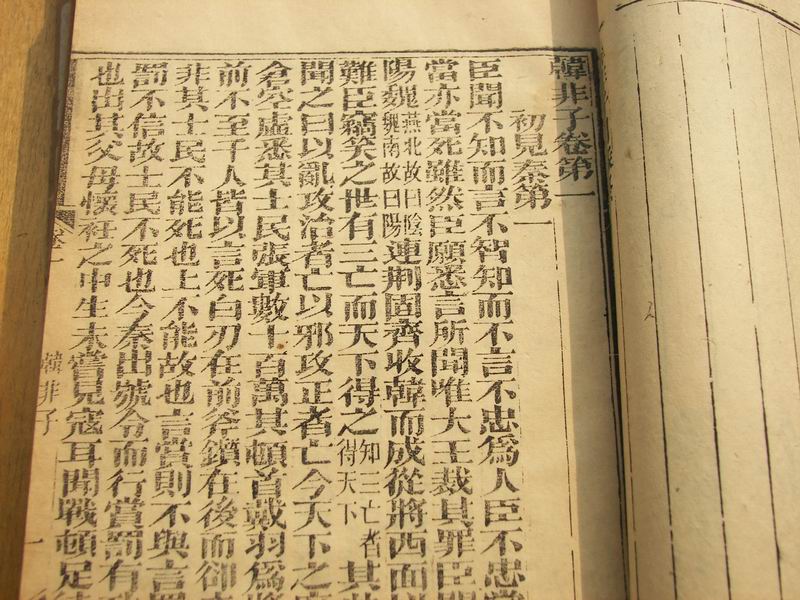 韓非子卷第一
初見秦第一
臣聞不知而言不智知而不言不忠爲人臣不忠當
當亦當死雖然臣願悉言所聞唯大王裁其罪臣聞
陽魏燕北故曰陰魏南故曰陽連荆固齊收韓而成從將西面以
難臣竊笑之世有三亡而天下得之知三亡者得天下其此
聞之曰以亂攻治者亡以邪攻正者亡今天下之府
倉空虛悉其士民張軍數十百萬其頓首戴羽爲將
前不至千人皆以言死白刃在前斧鑕在後而卻走
非其士民不能死也上不能故也言賞則不與言罰
罰不信故士民不死也今秦出號令而行賞罰有功
也出其父母懷衽之中生未嘗見寇耳聞戰頓足徒
卷一
韓非子
一